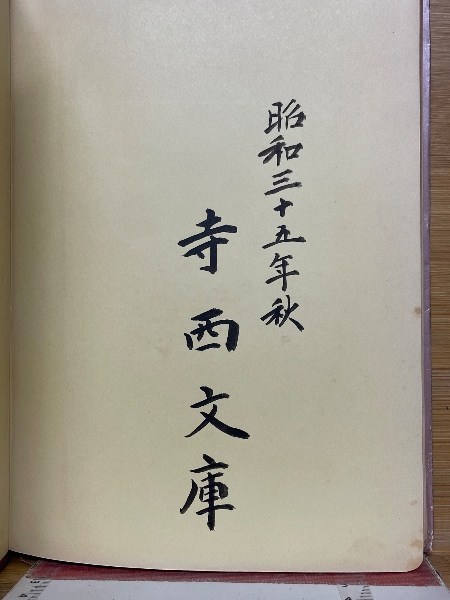 昭和三十五年秋
寺西文庫